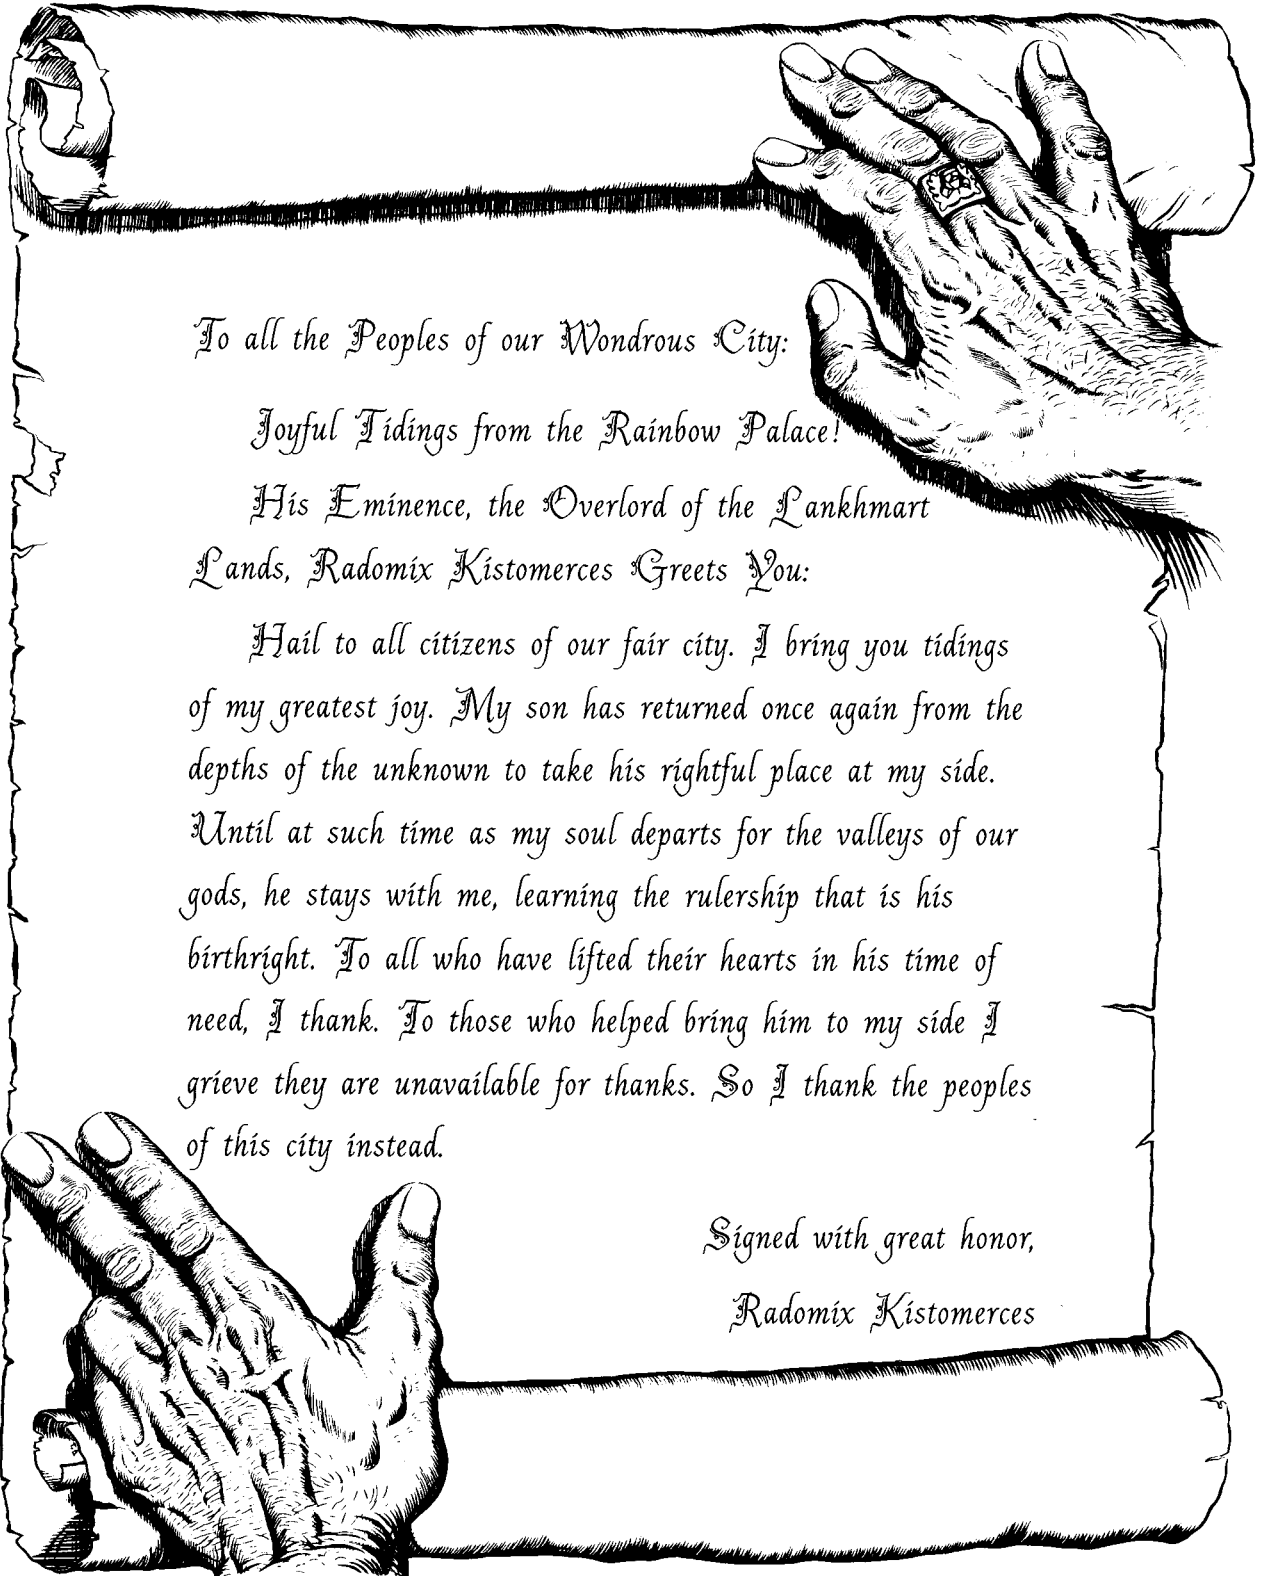 To all the Peoples of our Wondrous City:
Joyful Tidings from the Rainbow Palace!
His Eminence, the Overlord of the Lankhmart
Lands, Radomix Kistomerces Greets You:
Hail to all citizens of our fair city. I bring you tidings
of my greatest joy. My son has returned once again from the
depths of the unknown to take his rightful place at my side.
Until at such time as my soul departs for the valleys of our
gods, he stays with me, learning the rulership that is his
birthright. To all who have lifted their hearts in his time of
need, I thank. To those who helped bring him to my side I
grieve they are unavailable for thanks. So I thank the peoples
of this city instead.
Signed with great honor,
Radomix Kistomerces